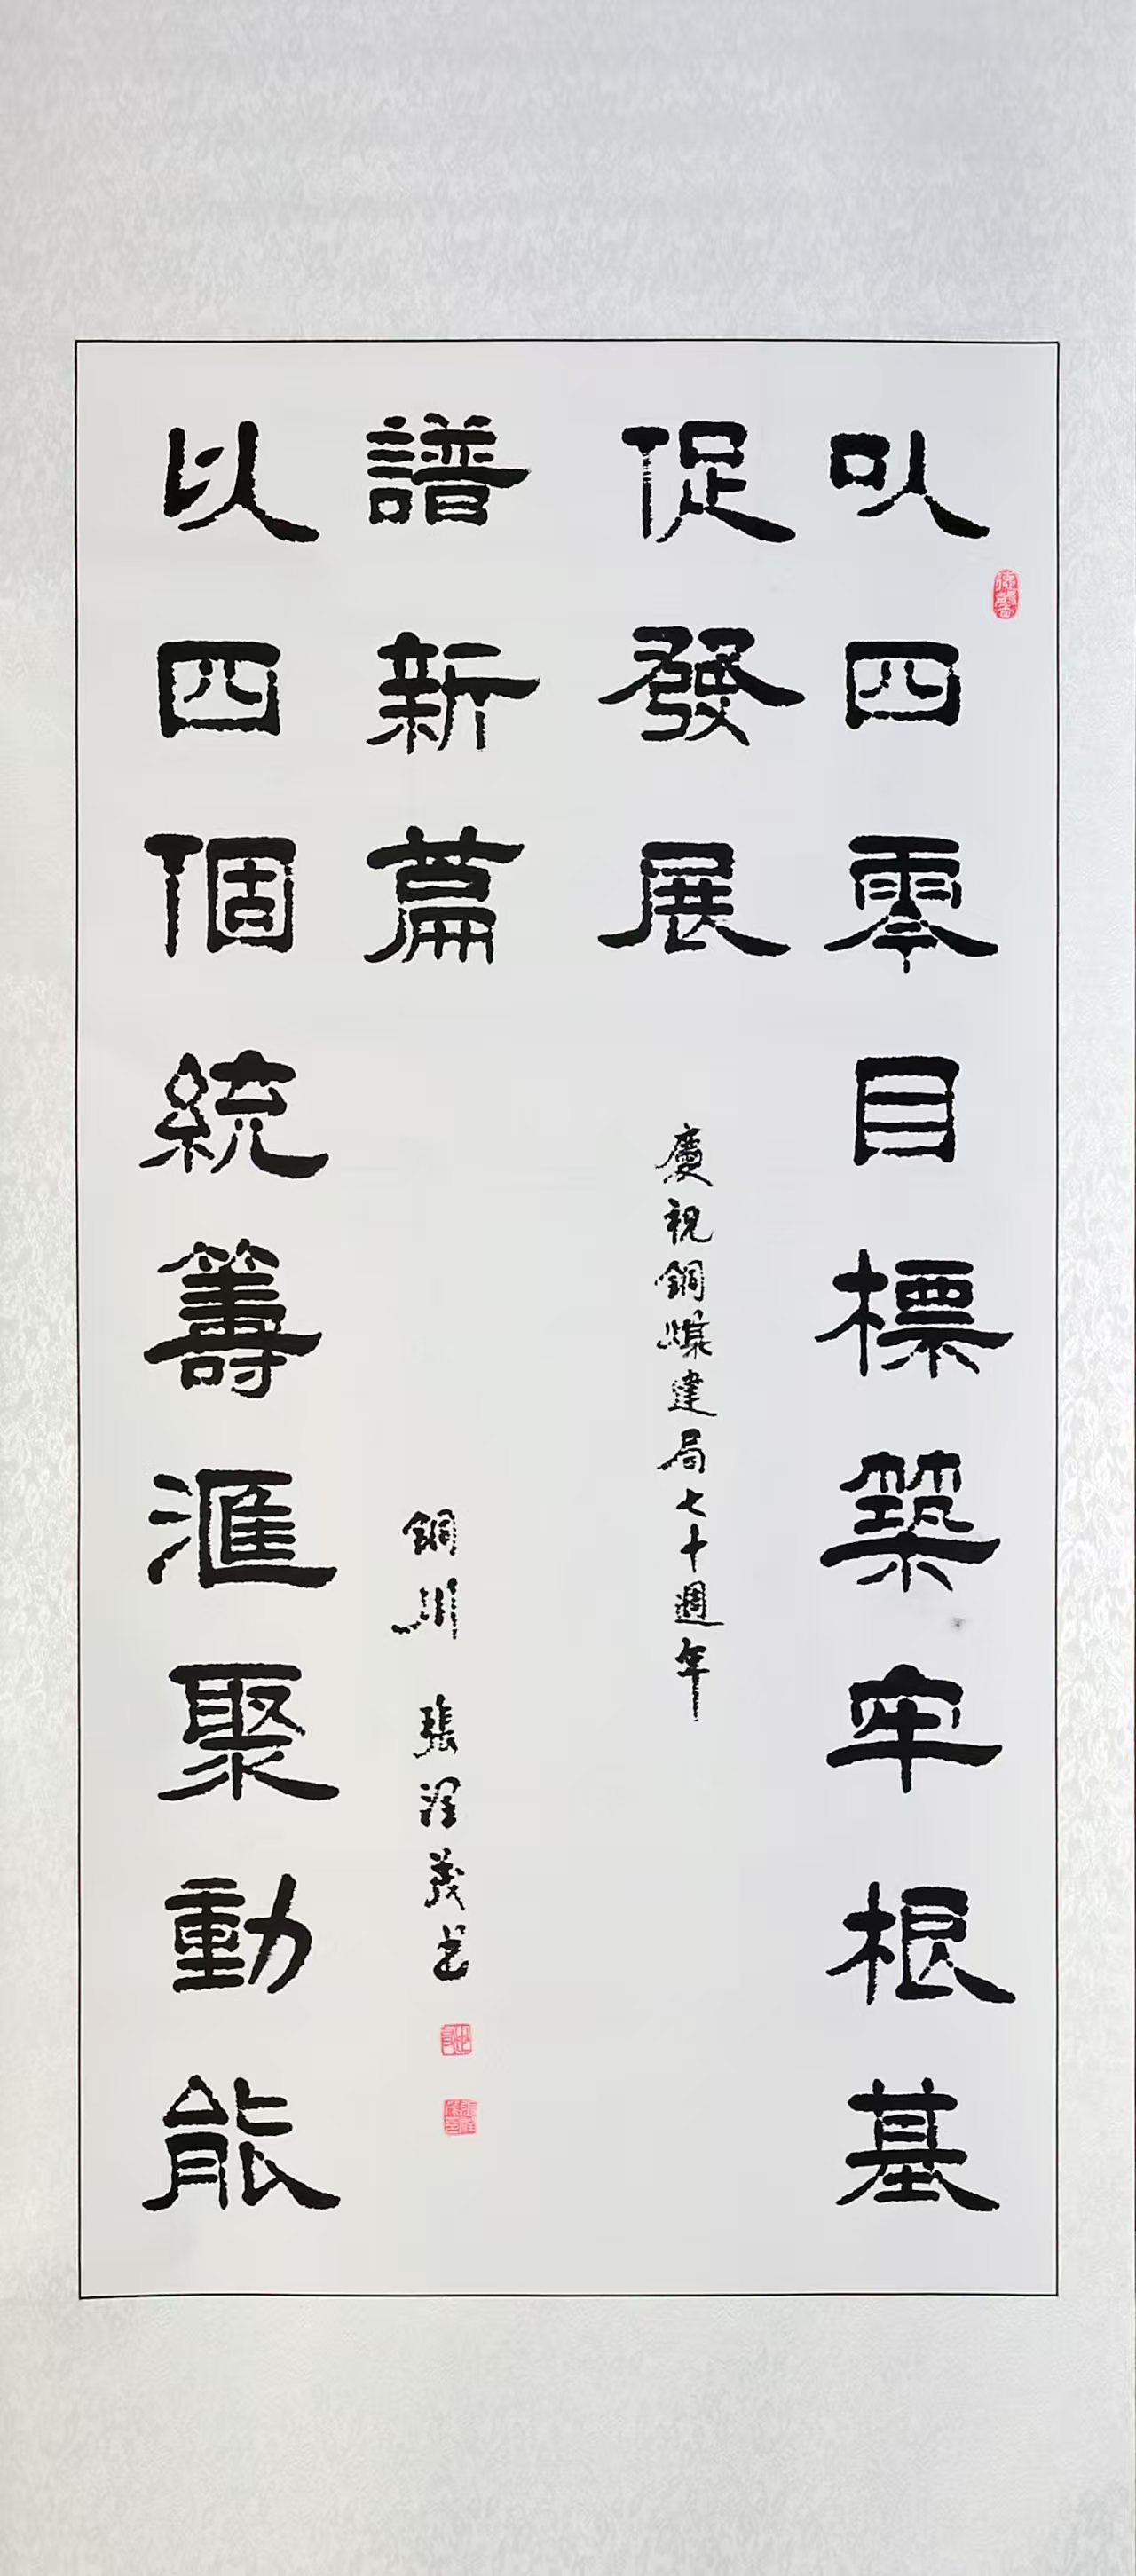 㕥四零目標築牢根基
促發展
慶祝銅煤建局七十週年
以四個統籌滙聚動能
譜新篇
銅川 張義书